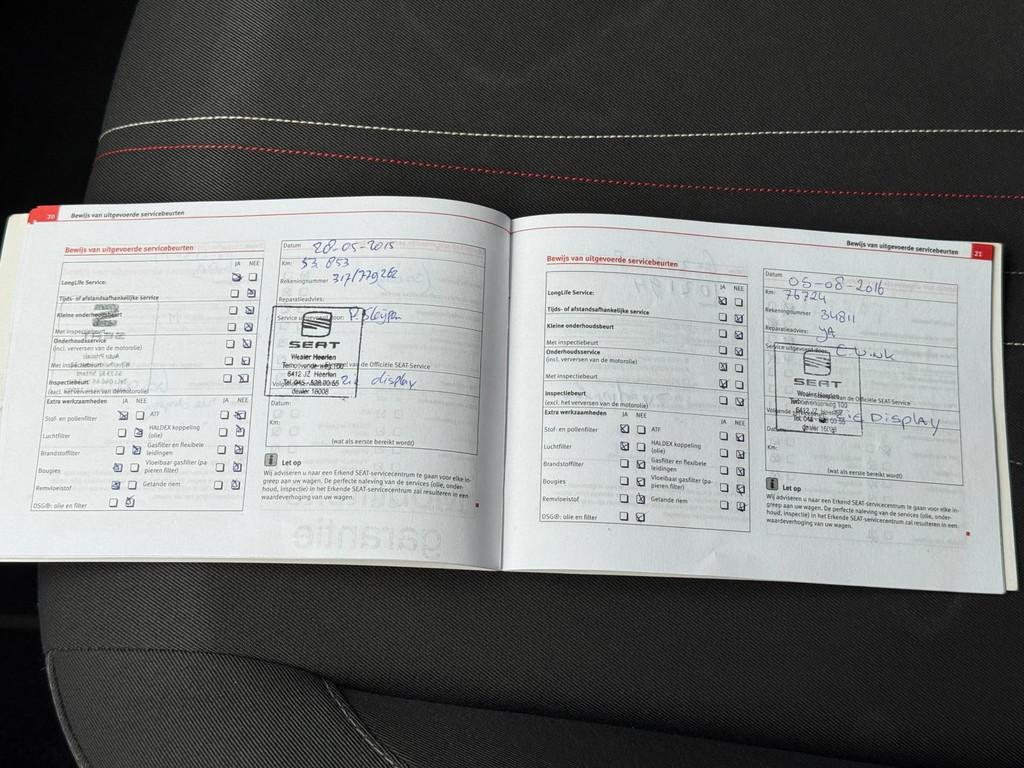 20 Bewijs van uitgevoerde servicebeurten
Bewijs van uitgevoerde servicebeurten
JA NEE
LongLife Service:
Tijds- of afstandsafhankelijke service
Kleine onderhoudsbeurt
Met inspectiebeurt
Onderhoudsservice
(incl. verversen van de motorolie)
Met inspectiebeurt
Inspectiebeurt
(excl. het verversen van de motorolie)
Extra werkzaamheden JA NEE JA NEE
Stof- en pollenfilter ATF
Luchtfilter HALDEX koppeling (olie)
Brandstoffilter Gasfilter en flexibele leidingen
Bougies Vloeibaar gasfilter (papieren filter)
Remvloeistof Getande riem
DSG®: olie en filter
Datum 28-05-2015
Km: 53.853
Rekeningnummer 317/779262
Reparatieadvies:
Service uitgevoerd door:
SEAT
Wealer Heerlen
6412 JZ Heerlen
Tel. 045-528 00 55
dealer 16008
van de Officiële SEAT-Service
zie display
Datum:
Km:
(wat als eerste bereikt wordt)
Let op
Wij adviseren u naar een Erkend SEAT-servicecentrum te gaan voor elke in-
greep aan uw wagen. De perfecte naleving van de services (olie, onder-
houd, inspectie) in het Erkende SEAT-servicecentrum zal resulteren in een
waardeverhoging van uw wagen.
Bewijs van uitgevoerde servicebeurten 21
Bewijs van uitgevoerde servicebeurten
JA NEE
LongLife Service:
Tijds- of afstandsafhankelijke service
Kleine onderhoudsbeurt
Met inspectiebeurt
Onderhoudsservice
(incl. verversen van de motorolie)
Met inspectiebeurt
Inspectiebeurt
(excl. het verversen van de motorolie)
Extra werkzaamheden JA NEE JA NEE
Stof- en pollenfilter ATF
Luchtfilter HALDEX koppeling (olie)
Brandstoffilter Gasfilter en flexibele leidingen
Bougies Vloeibaar gasfilter (papieren filter)
Remvloeistof Getande riem
DSG®: olie en filter
Datum 05-08-2016
Km: 76724
Rekeningnummer 34811
Reparatieadvies: yA
Service uitgevoerd door:
SEAT
van de Officiële SEAT-Service
dealer 16008
zie DISPLAY
Km:
(wat als eerste bereikt wordt)
Let op
Wij adviseren u naar een Erkend SEAT-servicecentrum te gaan voor elke in-
greep aan uw wagen. De perfecte naleving van de services (olie, onder-
houd, inspectie) in het Erkende SEAT-servicecentrum zal resulteren in een
waardeverhoging van uw wagen.